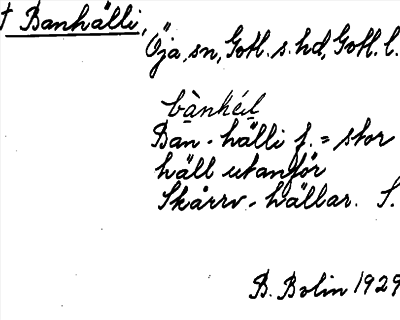 † Banhälli,
Öja sn, Gotl. s. hd, Gotl. l.
Ban-hälli f. = stor
häll utanför
Skärrv-hällar. S.
B. Bolin 1929